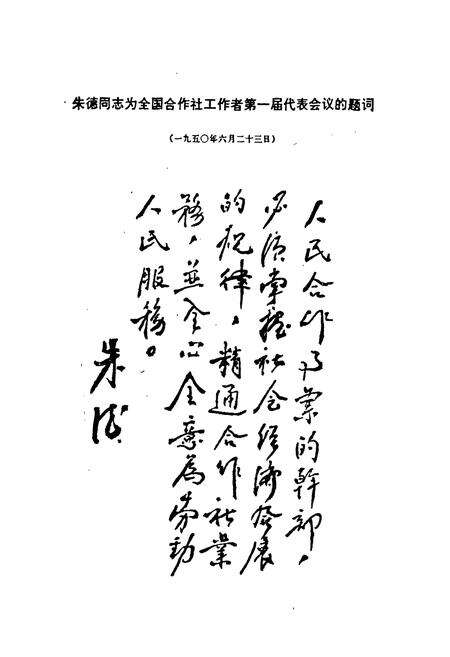 朱德同志为全国合作社工作者第一届代表会议的题词
(一九五〇年六月二十三日)
人民合作事業的幹部，
必須掌握社会經濟發展
的規律，精通合作社業
務，並全心全意為劳动
人民服務。
朱德